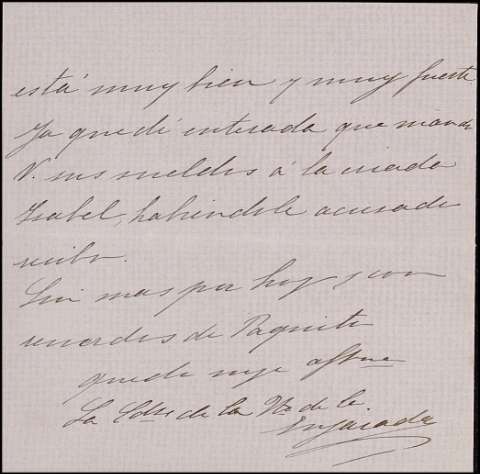 está muy bien y muy fuerte
Ya quedé enterada que mandó
V. sus sueldos á la criada
Isabel, habiendole acusado
recibo.
Sin mas por hoy y con
recuerdos de Paquita
queda suya affma
La Cdsa de la Va de la
Ensajada